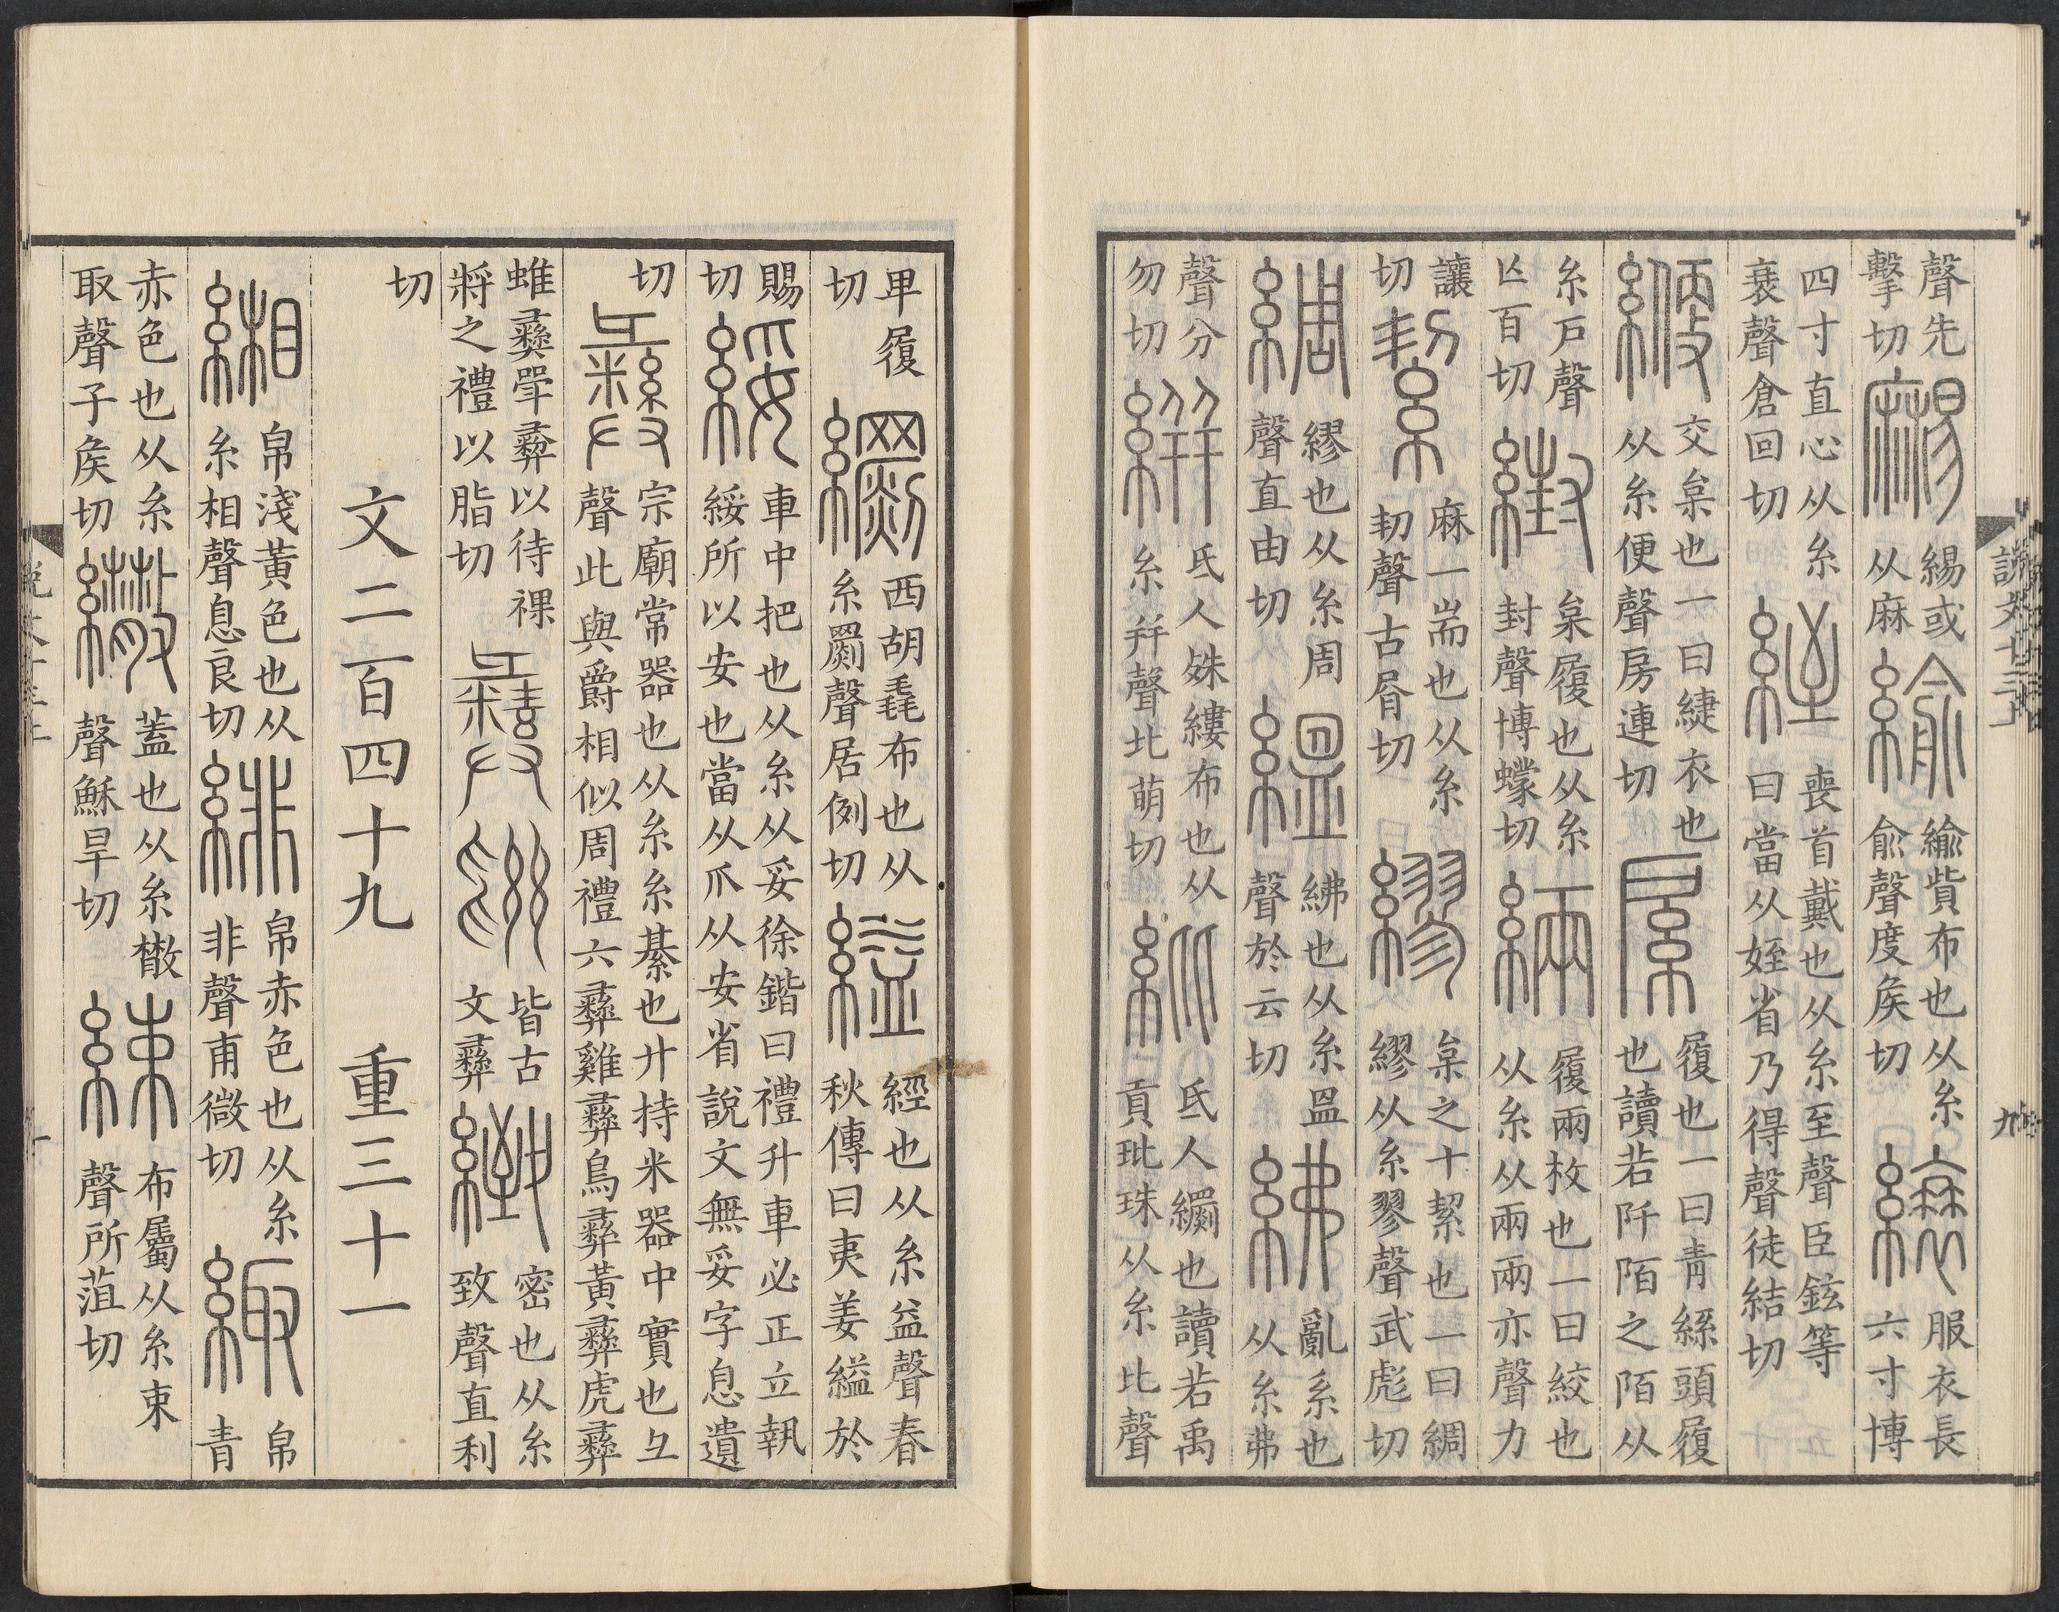 聲先擊切 緆或从麻 緰 緰貲布也从糸俞聲度矦切 縗 服衣長六寸博
四寸直心从糸衰聲倉回切 絰 喪首戴也从糸至聲臣鉉等曰當从姪省乃得聲徒結切
緶 交枲也一曰緁衣也从糸便聲房連切 履也一曰青絲頭履也讀若阡陌之陌从
糸戶聲亾百切 枲履也从糸封聲博蠓切 緉 履兩枚也一曰絞也从糸从兩兩亦聲力
讓切 絜 麻一耑也从糸㓞聲古屑切 繆 枲之十絜也一曰綢繆从糸翏聲武彪切
綢 繆也从糸周聲直由切 縕 紼也从糸𥁕聲於云切 紼 亂系也从糸弗
聲分勿切 絣 氐人殊縷布也从糸幷聲北萌切 紕 氐人繝也讀若禹貢玭珠从糸比聲
說文十三上 九
卑履切 繝 西胡毳布也从糸罽聲居例切 縊 經也从糸益聲春秋傳曰夷姜縊於
賜切 綏 車中把也从糸从妥徐鍇曰禮升車必正立執綏所以安也當从爪从安省說文無妥字息遺
切 彝 宗廟常器也从糸糸綦也廾持米器中實也彑聲此與爵相似周禮六彝雞彝鳥彝黃彝虎彝
蜼彝斝彝以待祼將之禮以脂切 皆古文彝 緻 密也从糸致聲直利
切
文二百四十九 重三十一
緗 帛淺黃色也从糸相聲息良切 緋 帛赤色也从糸非聲甫微切 緅 帛青
赤色也从糸取聲子矦切 繖 蓋也从糸㪔聲穌旱切 綀 布屬从糸束聲所菹切